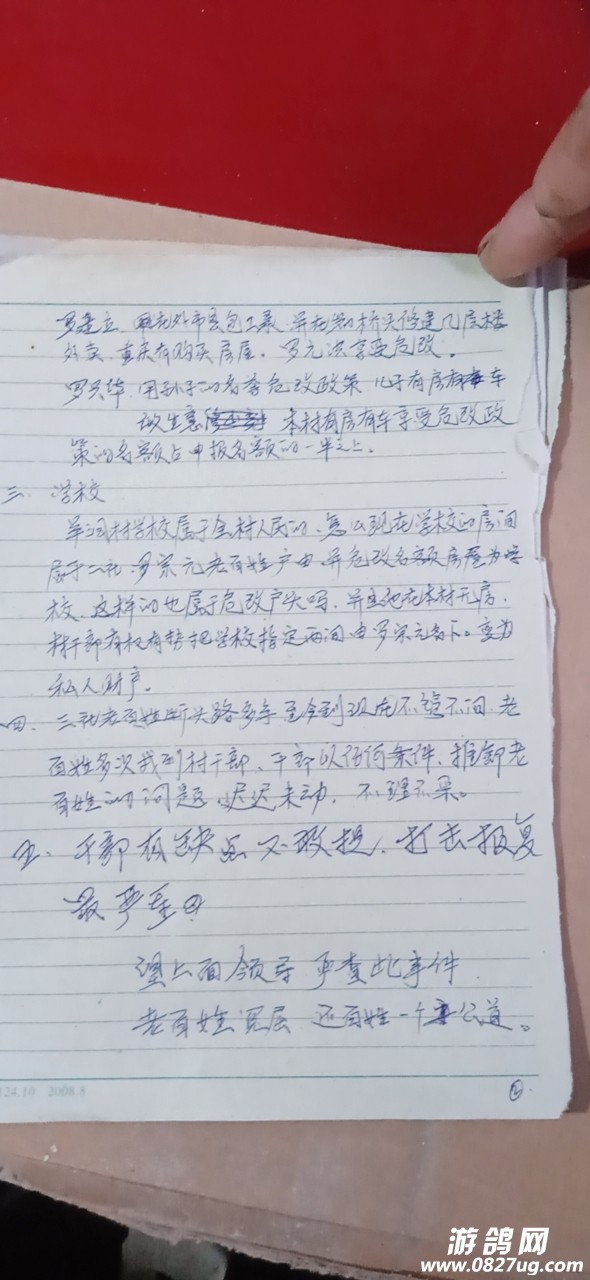 罗建立 在外市县包工录，并在 桥头修建几层楼
外卖，重庆有购买房屋。罗元洪享受危改。
罗兴华 用孙子的名 危改政策 儿子有房有车
做生意 本村有房有车享受危改政
策的名额占申报名额的一半之上。
三、学校
村学校属于全村人民的，怎么现在学校的房间
属于二社，罗宗元老百姓户由，并危改名额房屋为学
校，这样的也属于危改户头吗，并且他在本村无房，
村干部有权有势把学校指定两间由罗宗元名下。变为
私人财产。
四、三社老百姓断头路多年至今到现在不管不问，老
百姓多次找到村干部，干部以任何条件，推卸老
百姓的问题，迟迟未动，不理不采。
五、干部有缺点不敢提，打击报复
最严重
望上面领导严查此事件
老百姓 层 还百姓一个公道。
124.10 2008.8
②
游鸽网
www.0827ug.com